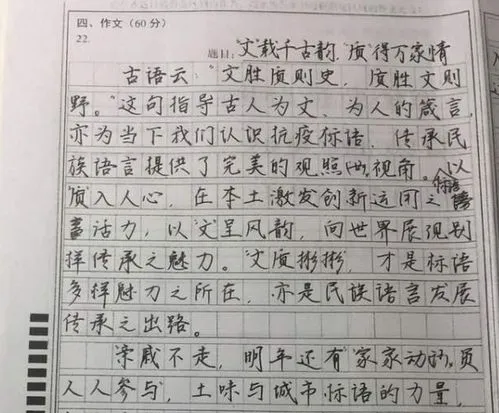 四、作文(60分)
22.
题目:"文"载千古韵,"质"得万家情
古语云:"文胜质则史,质胜文则
野。"这句指导古人为文、为人的箴言,
亦为当下我们认识抗疫标语,传承民
族语言提供了完美的观照视角。以
"质"入人心,在本土激发创新运用之标语
活力,以"文"呈风韵,向世界展现别
样传承之魅力。"文质彬彬,才是标语
多样魅力之所在,亦是民族语言发展
传承之出路。
亲戚不走,明年还有"家家动员
人人参与,土味与城市标语的力量,